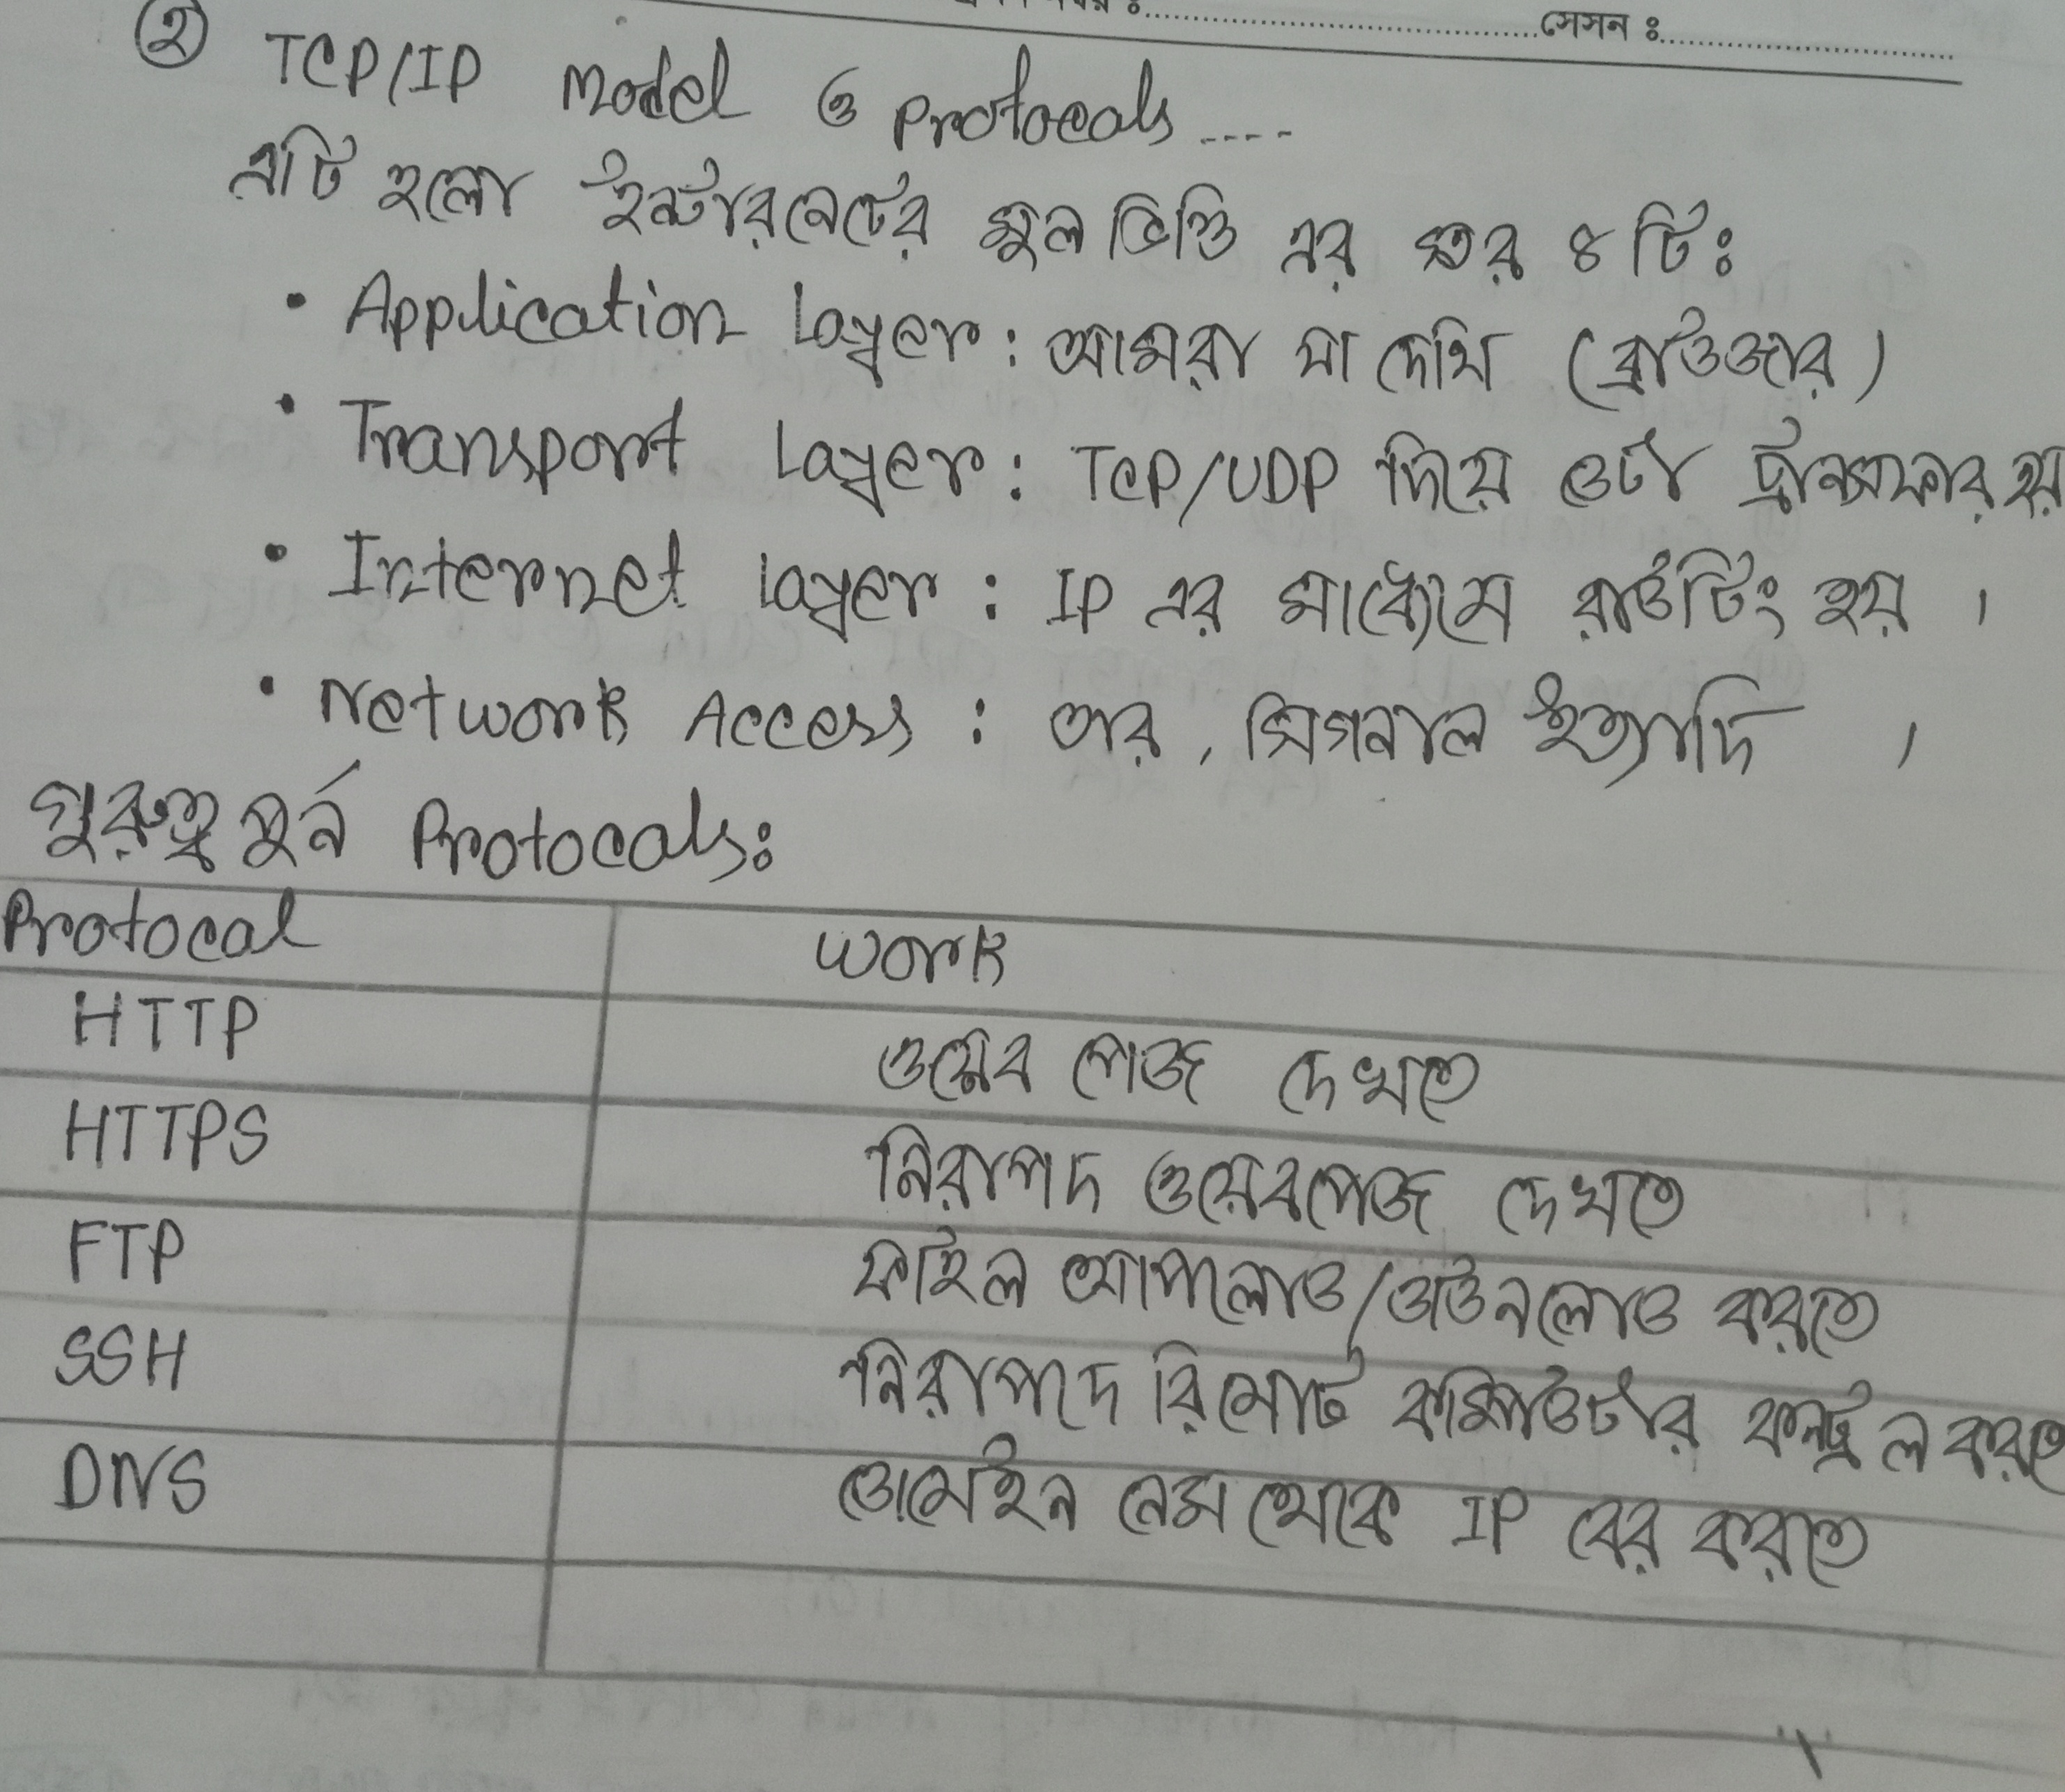 সেসন ঃ
② TCP/IP Model ও Protocals ....
এটি হলো ইন্টারনেটের মূল ভিত্তি এর স্তর ৪ টিঃ
• Application Layer : আমরা যা দেখি (ব্রাউজার)
• Transport Layer : TCP/UDP দিয়ে ডটা ট্রান্সফার হয়
• Internet Layer : IP এর মাধ্যেমে রাউটিং হয় ।
• Network Access : তার, সিগনাল ইত্যাদি ।
গুরুত্বপূর্ন Protocals:
Protocal Work
HTTP ওয়েব পেজ দেখতে
HTTPS নিরাপদ ওয়েবপেজ দেখতে
FTP ফাইল আপলোড/ডাউনলোড করতে
SSH নিরাপদে রিমোট কম্পিউটার কন্ট্রল করতে
DNS ডোমেইন নেম থেকে IP বের করতে